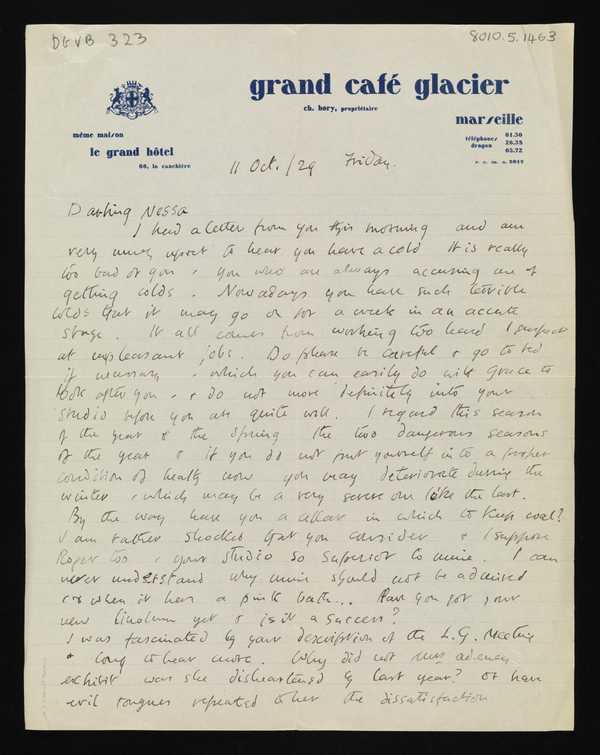 DGVB 323
8010.5.1463
grand café glacier
ch. bory, propriétaire
marseille
même maison
le grand hôtel
66, la canebière
téléphones 01.50
dragon 26.38
65.72
r. c. m. a. 5017
11 Oct. /29 Friday.
Darling Nessa
I had a letter from you this morning and am
very much upset to hear you have a cold It is really
too bad of you, you who are always accusing me of
getting colds. Nowadays you have such terrible
colds that it may go on for a week in an accute
stage. It all comes from working too hard I suspect
at unpleasant jobs. Do please be careful & go to bed
if necessary, which you can easily do with Grace to
look after you, & do not move definitely into your
studio before you are quite well. I regard this season
of the year & the Spring the two dangerous seasons
of the year & if you do not put yourself into a proper
condition of health now you may deteriorate during the
winter, which may be a very severe one like the last.
By the way have you a cellar in which to keep coal?
I am rather shocked that you consider & I suppose
Roger too, your studio so superior to mine. I can
never understand why mine should not be admired
when it has a pink bath... Have you got your
new linoleum yet & is it a success?
I was fascinated by your description of the L.G. Meeting
& long to hear more. Why did not Miss
exhibit was she disheartened by last year? or have
evil tongues repeated to her the dissatisfaction